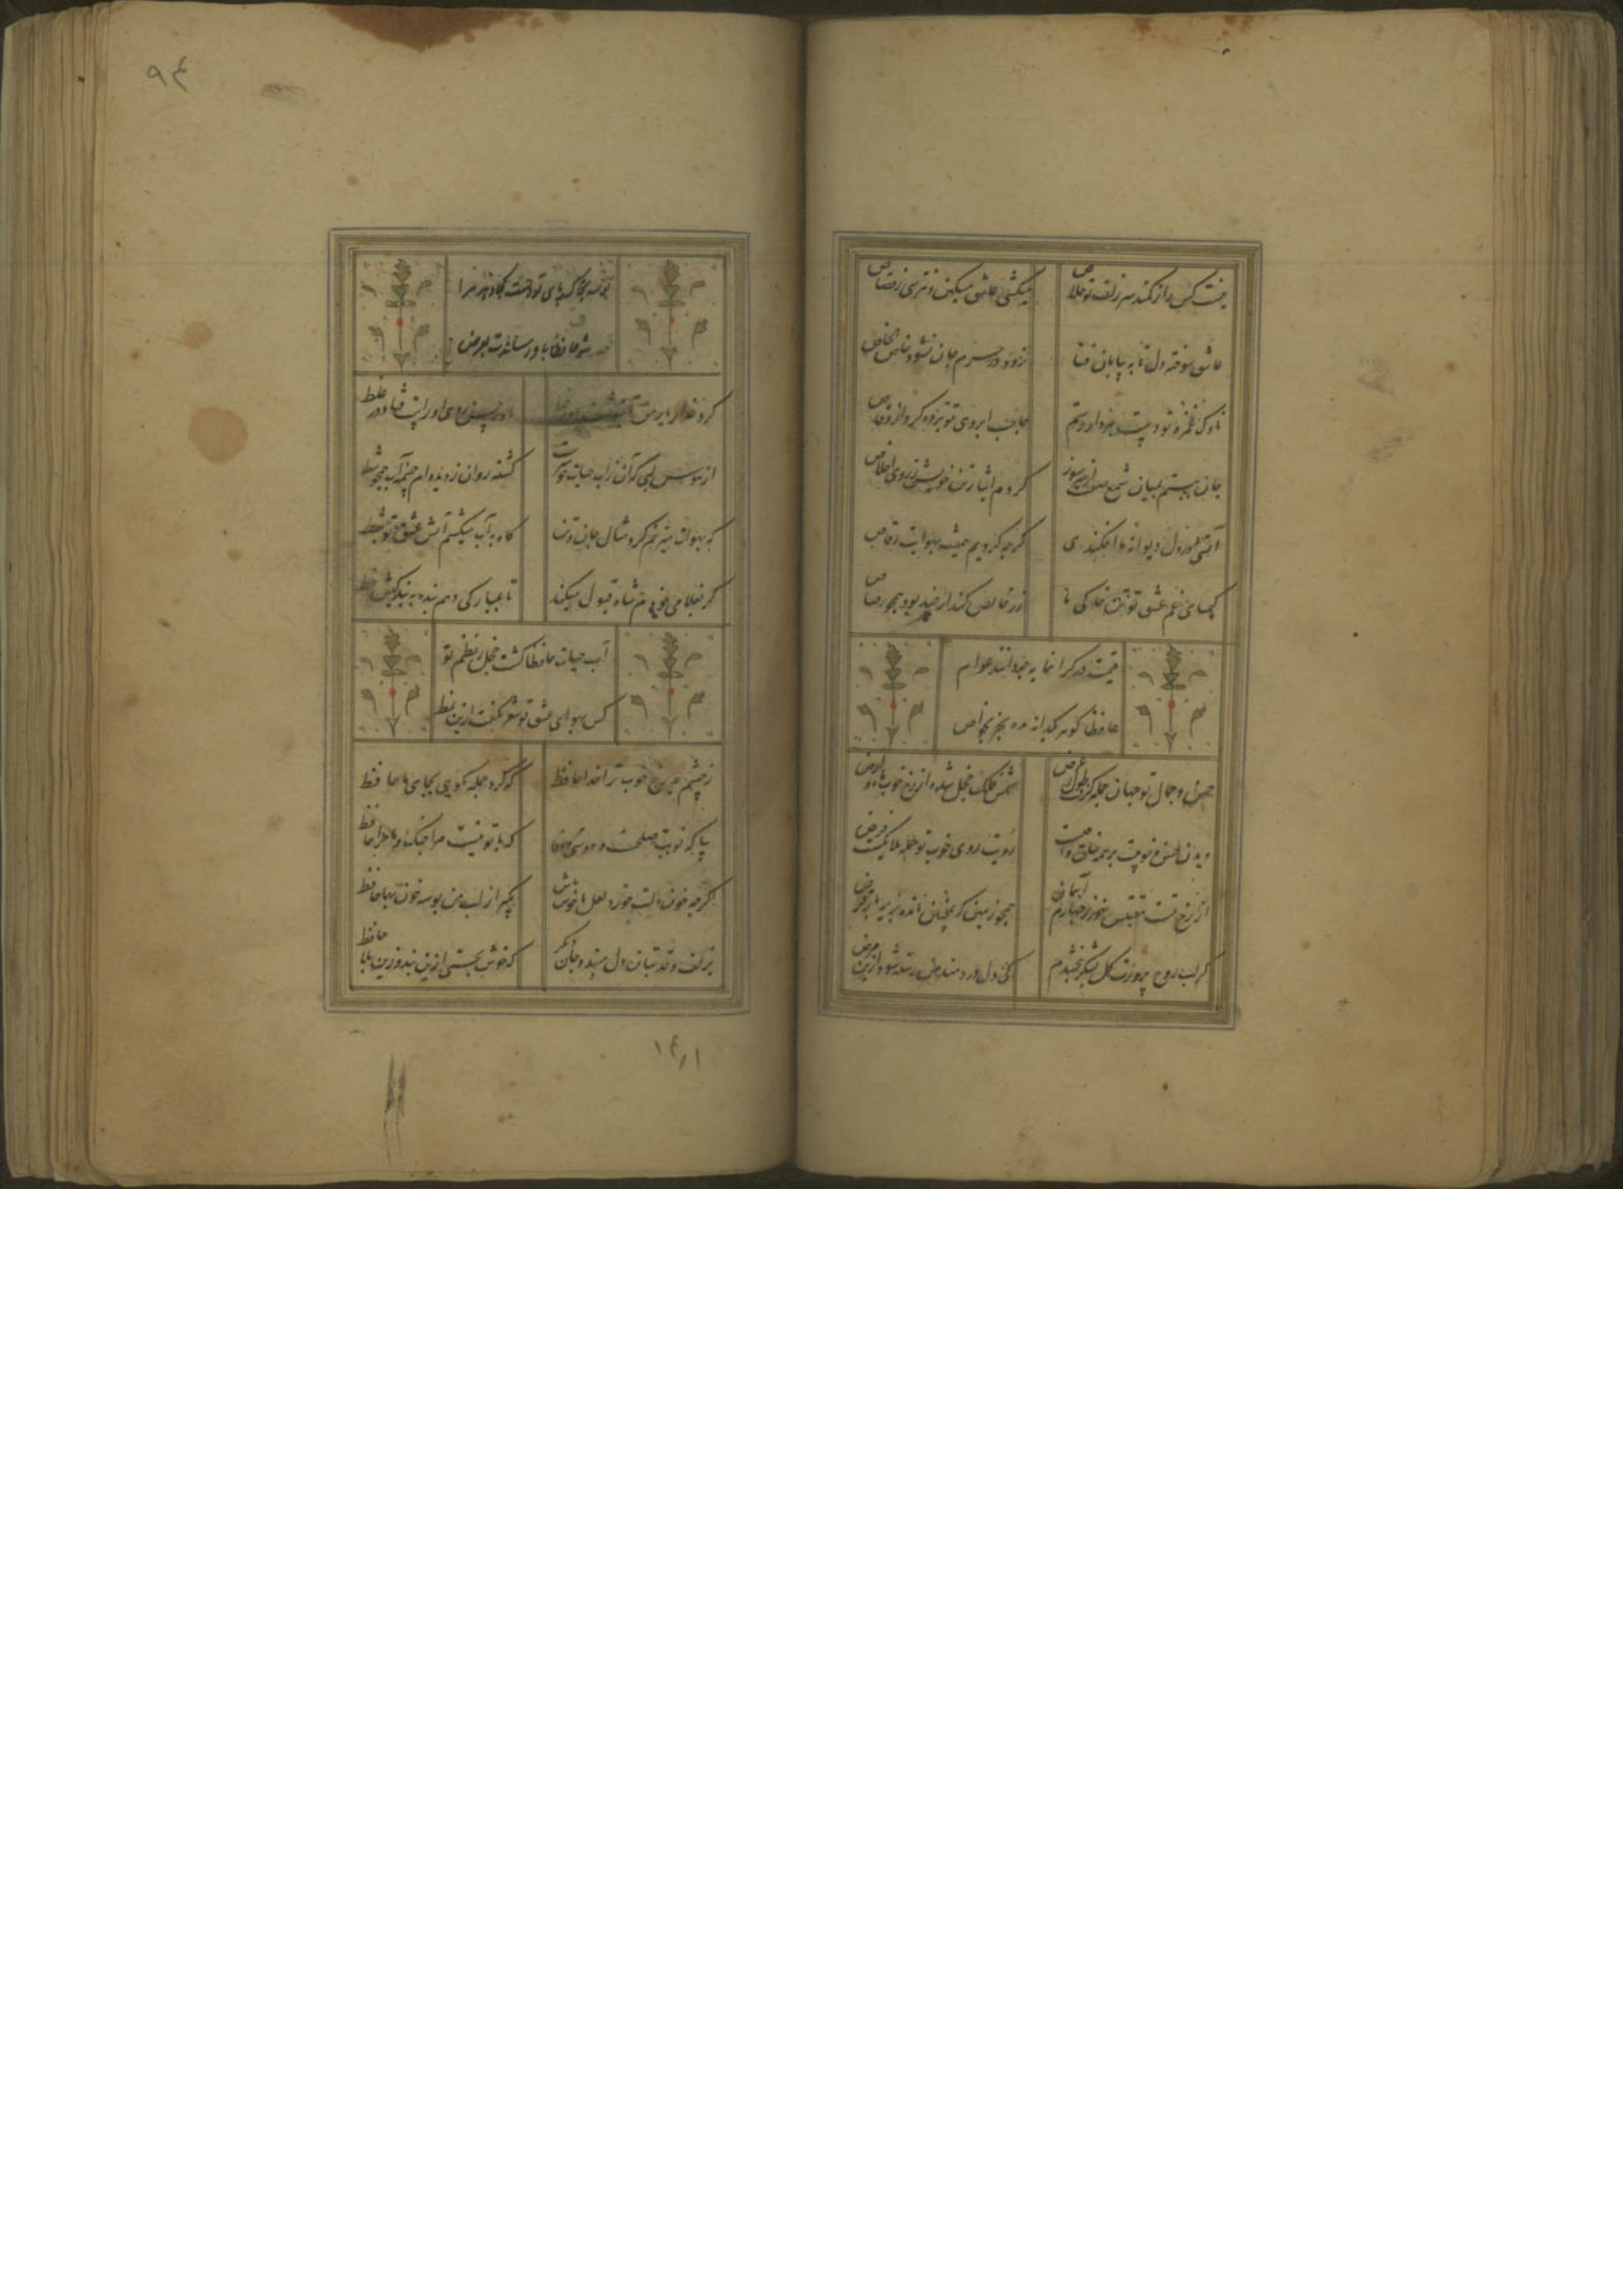 نیست کس را ز کمند سر زلف تو خلاص
میکشی عاشق مسکین و نترسی ز قصاص
عاشق سوخته دل تا به بیابان فنا
نرود در حرم جان نشود خاص الخاص
ناوک غمزه تو دست ببرد از رستم
حاجب ابروی تو برده گرو از وقاص
جان نهادم بمیان شمع صفت از سر سوز
کردم ایثار تن خویش ز روی اخلاص
آتشی در دل دیوانه ما افکندی
گرچه کردیم همیشه بهوایت رقاص
کیمیای غم عشق تو تن خاکی ما
زر خالص کند ار چند بود همچو رصاص
قیمت در گرانمایه چه دانند عوام
حافظا گوهر یکدانه مده جز بخواص
حسن و جمال تو جهان جمله گرفت طول و عرض
شمس فلک خجل شده از رخ خوب ماه ارض
دیدن حسن و خوبیت بر همه خلق واجبست
رؤیت روی خوب تو جمله ملایکست فرض
از رخ تست مقتبس خور ز چهارم آسمان
همچو زمین هفتمین مانده بزیر بار قرض
گر لب روح پرورت گل شکر نبخشدم
کی دل دردمند من رسته شود ازین مرض
۹۴
بوسه بخاک پای تو دست کجا دهد مرا
حافظا باد رساندت بعرض
گرد عذار یار من تا بنوشت
از هوس لبی که آن ز آب حیات خوشترست
گشته روان ز دیده ام چشمه آب همچو شط
که بهوات میزنم گرد مثال جان و تن
گاه به آب میکشم آتش عشق تو چو بط
گر بغلامی خودم شاه قبول میکند
تا بمبارکی دهم بنده به بندگیش خط
آب حیات حافظا گشت خجل ز نظم تو
کس بهوای عشق تو شعر نگفت ازین نمط
ز چشم بد رخ خوب ترا خدا حافظ
که کرد جمله نکویی بجای ما حافظ
بیا که نوبت صلحست و دوستی و وفا
که با تو نیست مرا جنگ و ماجرا حافظ
اگرچه خون دلت خورد لعل ما خوش باش
بگیر از لب من بوسه خونبها حافظ
بزلف و قد بتان دل مبند و جان دگر
که خوش بجستی ازین بند و زین بلا حافظ